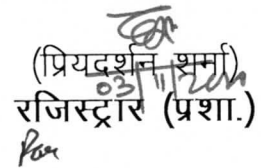 (प्रियदर्शन शर्मा)
03/11/20
रजिस्ट्रार (प्रशा.)